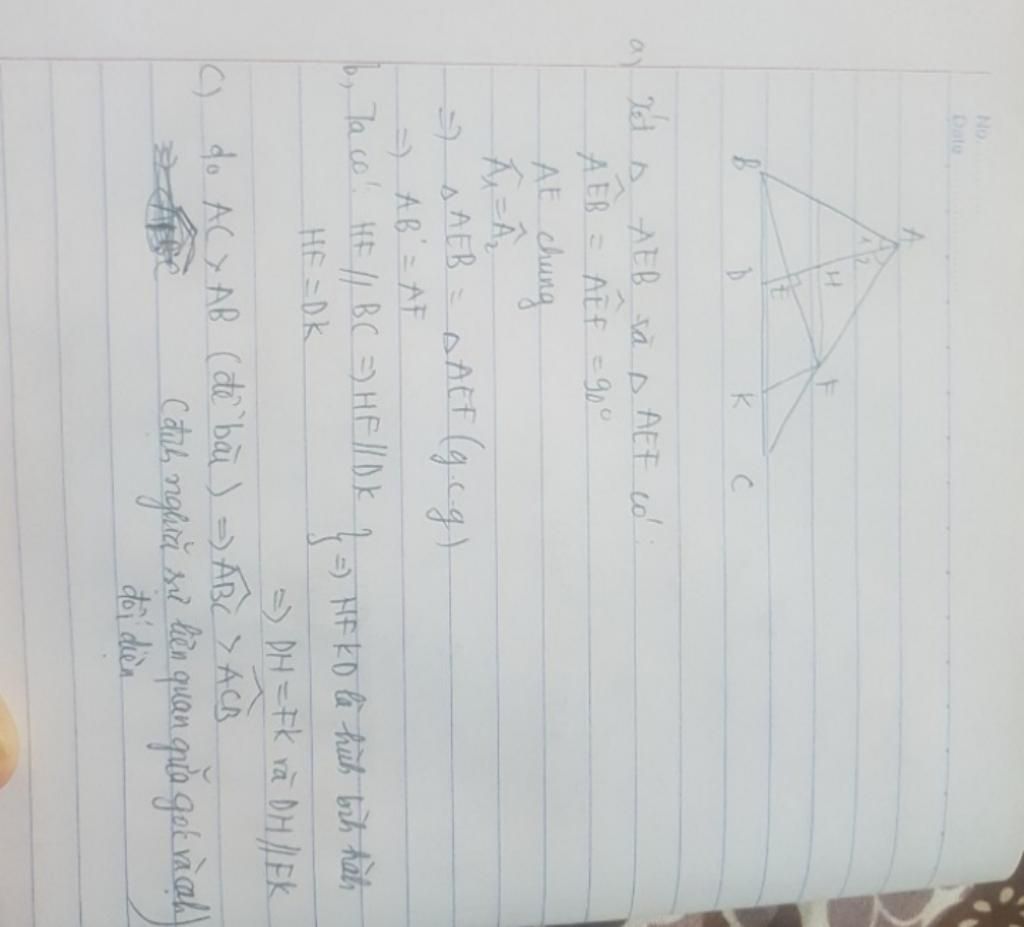 No.
Date
A
1
2
H
F
E
B
D
K
C
a) Xét Δ AEB và Δ AEF có:
AÊB = AÊF = 90°
AE chung
Â1 = Â2
=) Δ AEB = Δ AEF (g.c.g)
=) AB = AF
b, Ta có: HF // BC =) HF // DK } =) HFKD là hình bình hành
HF = DK
=) DH = FK và DH // FK
c) do AC > AB (đề bài) =) ABC > ACB
(định nghĩa sự liên quan giữa góc và cạnh
đối diện)